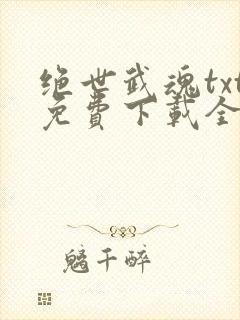 绝世武魂txt
免費下載全
魑千醉